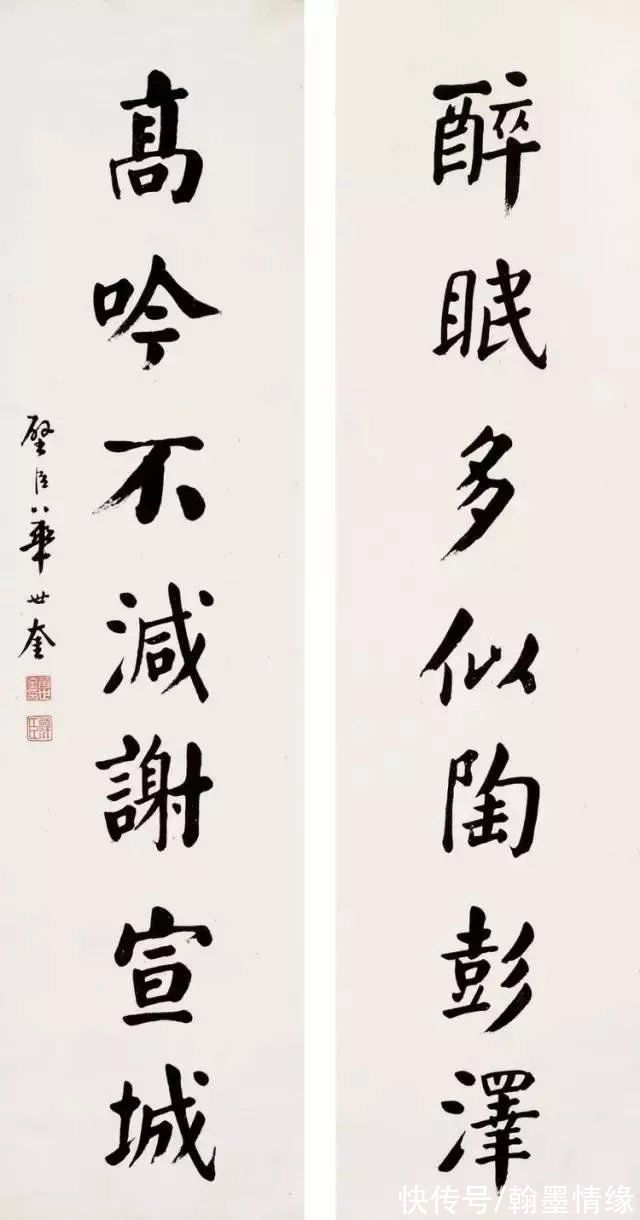 醉眠多似陶彭澤
高吟不減謝宣城
璧臣華世奎
快传号/翰墨情缘